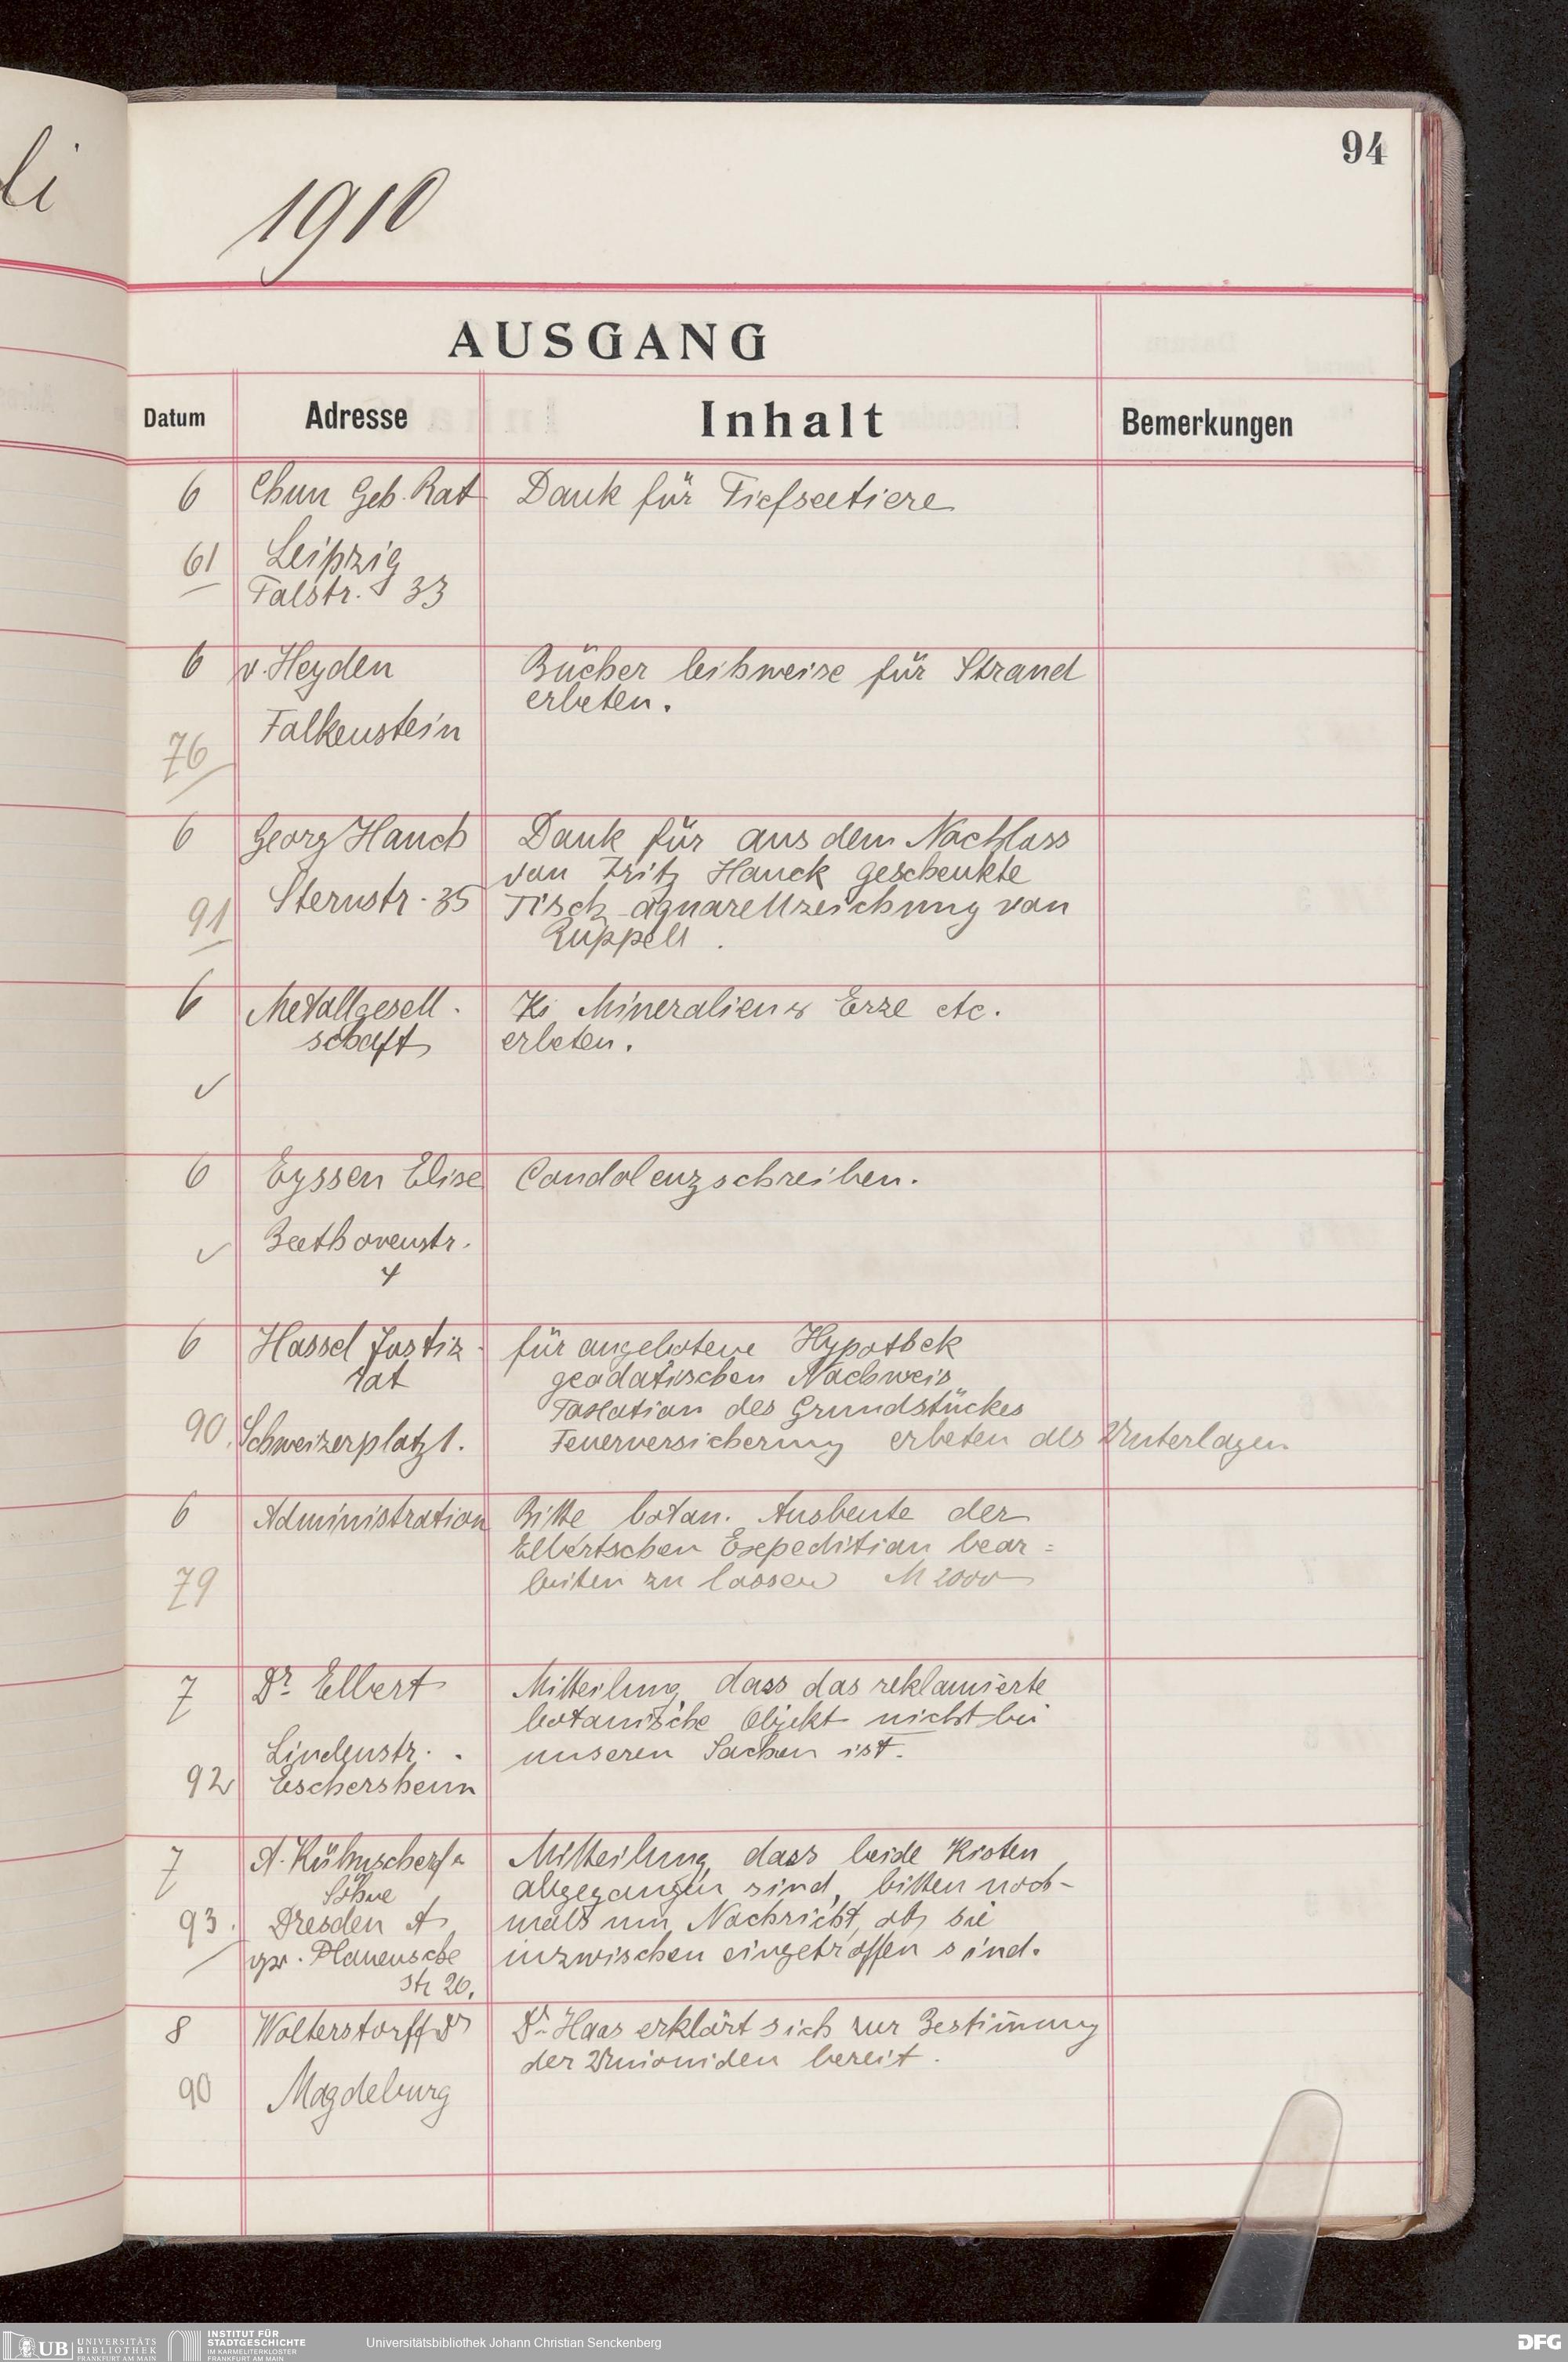 li
94
1910
AUSGANG
Datum Adresse Inhalt Bemerkungen
6 Chun Geh. Rat Dank für Tiefseetiere
61 Leipzig
Talstr. 33
6 v. Heyden Bücher leihweise für Strand
erbeten.
Falkenstein
76
6 Georg Hauck Dank für aus dem Nachlass
von Fritz Hauck geschenkte
91 Sternstr. 35 Tisch aquarellzeichnung von
Rüppell.
6 Metallgesell- Mineralien & Erze etc.
schaft erbeten.
✓
6 Eyssen Elise Condolenzschreiben.
✓ Beethovenstr.
4
6 Hassel Justiz- für angebotene Hypothek
rat geodätischen Nachweis
Taxation des Grundstückes
90. Schweizerplatz 1. Feuerversicherung erbeten als Unterlagen
6 Administration Bitte botan. Ausbeute der
Elbertschen Expedition bear=
79 beiten zu lassen M 2000
7 Dr. Elbert Mitteilung, dass das reklamierte
botanische Objekt nicht bei
Lindenstr. unseren Sachen ist.
92 Eschersheim
7 A. Kühnscherf & Mitteilung, dass beide Kisten
Söhne abgegangen sind, bitten noch-
93. Dresden A mals um Nachricht, ob sie
gr. Plauensche inzwischen eingetroffen sind.
Str 20.
8 Wolterstorff Dr Dr. Haas erklärt sich zur Bestim̄ung
der Unioniden bereit.
90 Magdeburg
UB UNIVERSITÄTS
BIBLIOTHEK
FRANKFURT AM MAIN
INSTITUT FÜR
STADTGESCHICHTE
IM KARMELITERKLOSTER
FRANKFURT AM MAIN
Universitätsbibliothek Johann Christian Senckenberg
DFG